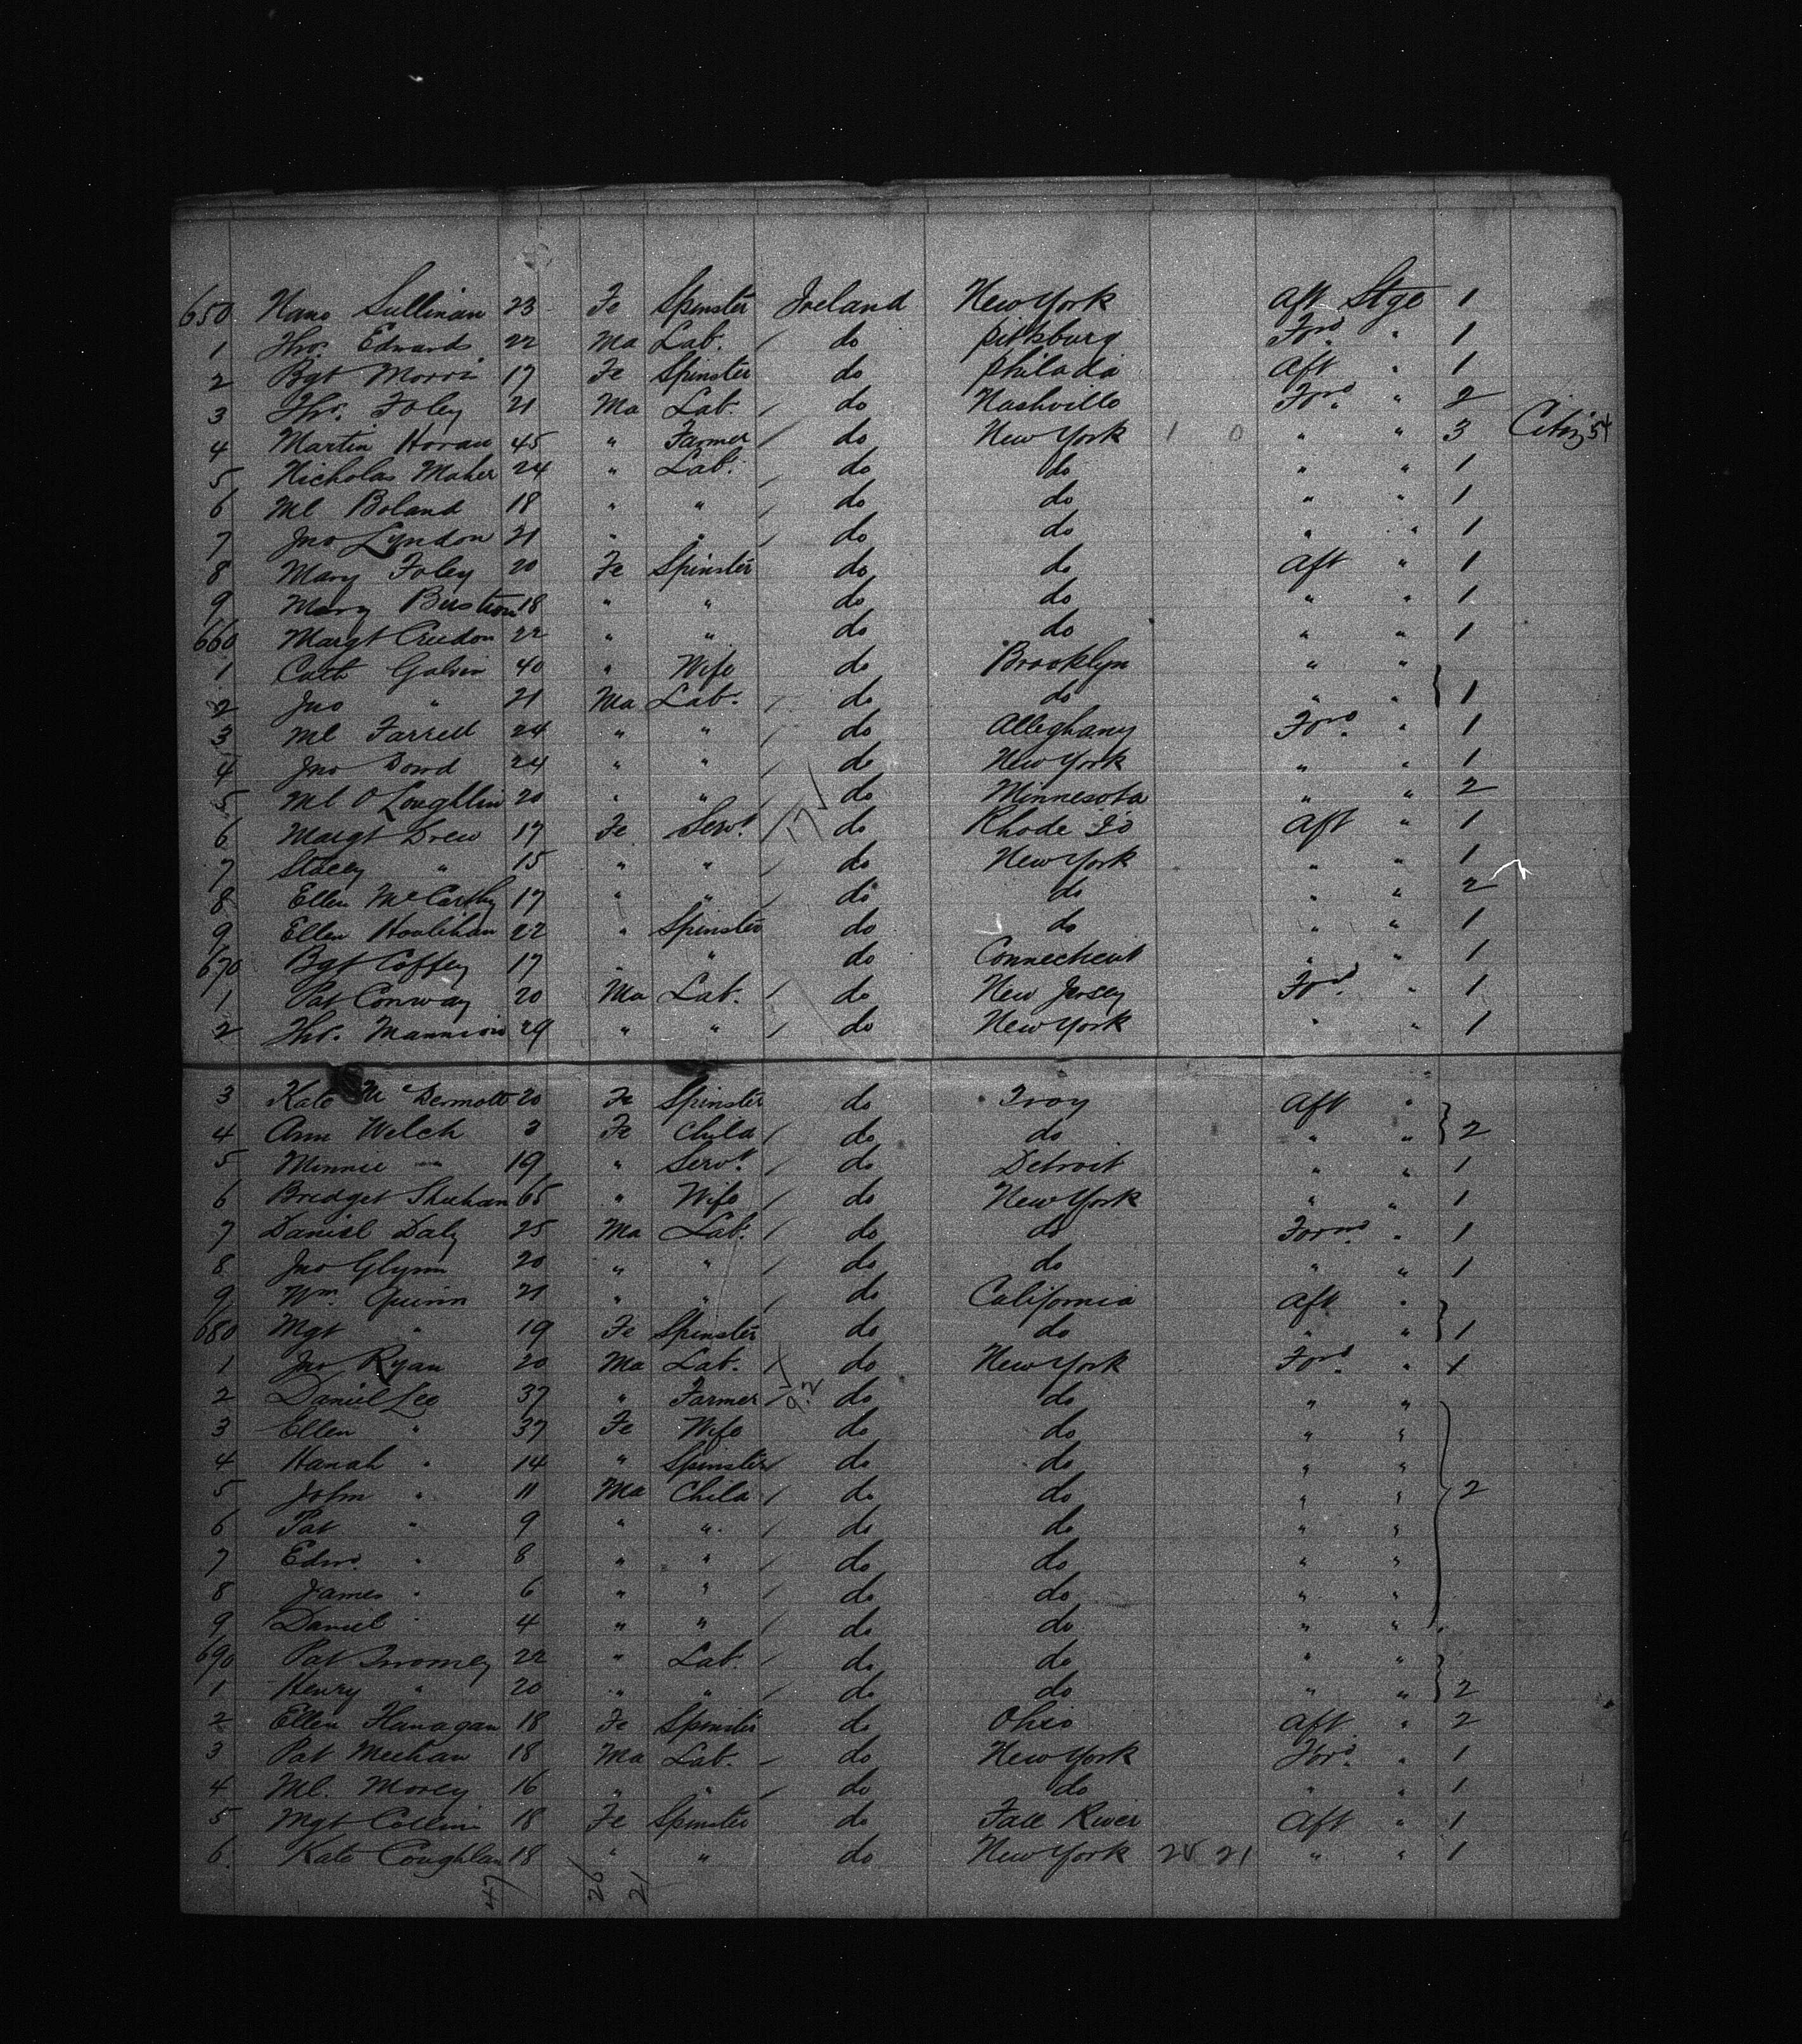 650 Nano Sullivan 23 Fe Spinster Ireland New York Aft Stge 1
1 Thos. Edwards 22 Ma Lab. / do Pittsburg Ford " 1
2 Bgt Morris 17 Fe Spinster do Philada Aft " 1
3 Thos. Foley 21 Ma Lab. / do Nashville Ford " 2
4 Martin Horan 45 " Farmer / do New York 1 0 " " 3 Citiz 54
5 Nicholas Maher 24 " Lab. / do do " " 1
6 Ml Boland 18 " " / do do " " 1
7 Jno Lyndon 21 " " / do do " " 1
8 Mary Foley 20 Fe Spinster do do Aft " 1
9 Mary 18 " " do do " " 1
660 Margt Creedon 22 " " do do " " 1
1 Cath Galvin 40 " Wife do Brooklyn " "
2 Jno " 21 Ma Lab. / do do " " } 1
3 Ml Farrell 24 " " / do Alleghany Ford " 1
4 Jno Dowd 24 " " / do New York " " 1
5 Ml O'Loughlin 20 " " / do Minnesota " " 2
6 Margt Drew 17 Fe Servt / 17 / do Rhode Is Aft " 1
7 Stacey " 15 " " / do New York " " 1
8 Ellen McCarthy 17 " " / do do " " 2
9 Ellen Hoolihan 22 " Spinster do do " " 1
670 Bgt Coffey 17 " " do Connecticut " " 1
1 Pat Conway 20 Ma Lab. / do New Jersey Ford " 1
2 Thos. Mannion 29 " " / do New York " " 1
3 Kate McDermott 20 Fe Spinster do Troy Aft "
4 Ann Welch 3 Fe Child / do do " " } 2
5 Minnie " 19 " Servt / do Detroit " " 1
6 Bridget Shuhan 65 " Wife / do New York " " 1
7 Daniel Daly 25 Ma Lab. / do do Forwd " 1
8 Jno Glynn 20 " " / do do " " 1
9 Wm. Quinn 21 " " / do California Aft "
680 Mgt " 19 Fe Spinster do do " " } 1
1 Jno Ryan 20 Ma Lab. / do New York Ford " 1
2 Daniel Leo 37 " Farmer / 92 do do " "
3 Ellen " 37 Fe Wife do do " "
4 Hanah " 14 " Spinster / do do " "
5 John " 11 Ma Child / do do " " } 2
6 Pat " 9 " " / do do " "
7 Edwd " 8 " " / do do " "
8 James " 6 " " / do do " "
9 Daniel " 4 " " / do do " "
690 Pat Twomey 22 " Lab. / do do " "
1 Henry " 20 " " / do do " " } 2
2 Ellen Flanagan 18 Fe Spinster do Ohio Aft " 2
3 Pat Meehan 18 Ma Lab. / do New York Ford " 1
4 Ml. Morey 16 " " / do do " " 1
5 Mgt Collins 18 Fe Spinster do Fall River Aft " 1
6 Kate Coughlan 18 " " do New York 25 21 " " 1
47 26 21